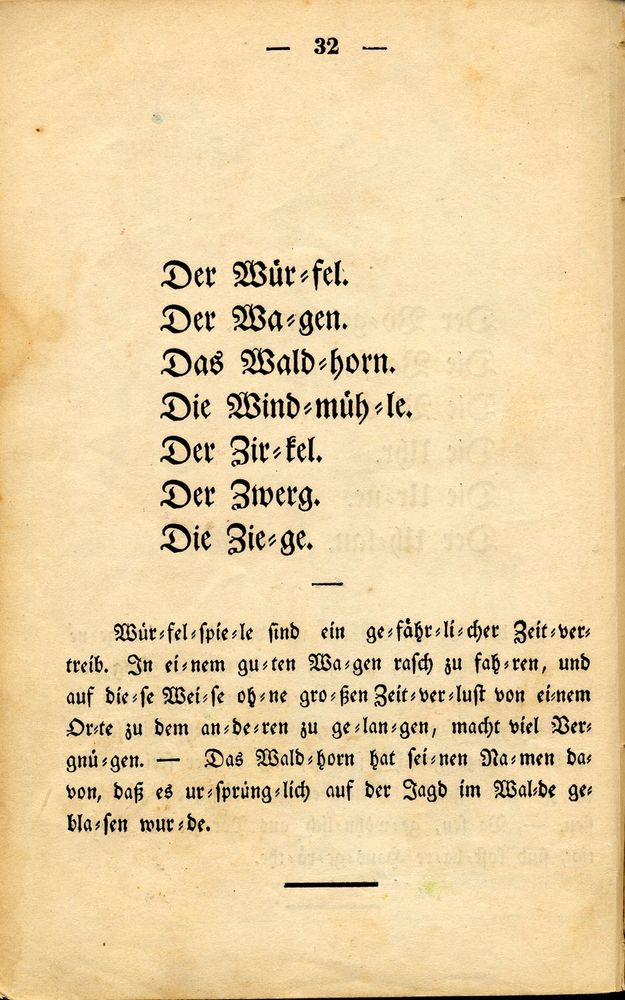 — 32 —
Der Wür-fel.
Der Wa-gen.
Das Wald-horn.
Die Wind-müh-le.
Der Zir-kel.
Der Zwerg.
Die Zie-ge.
Wür-fel-spie-le sind ein ge-fähr-li-cher Zeit-ver-
treib. In ei-nem gu-ten Wa-gen rasch zu fah-ren, und
auf die-se Wei-se oh-ne gro-ßen Zeit-ver-lust von einem
Or-te zu dem an-de-ren zu ge-lan-gen, macht viel Ver-
gnü-gen. — Das Wald-horn hat sei-nen Na-men da-
von, daß es ur-sprüng-lich auf der Jagd im Wal-de ge-
bla-sen wur-de.